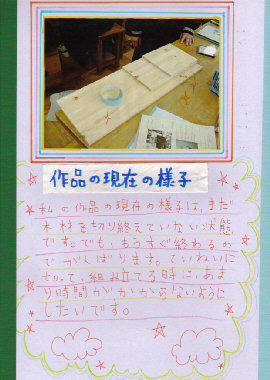 作品の現在の様子
私の作品の現在の様子は、まだ
木材を切り終えていない状態
です。でも、もうすぐ終わるの
でがんばります。ていねいに
切って、組み立てる時に、あま
り時間がかからないように
したいです。